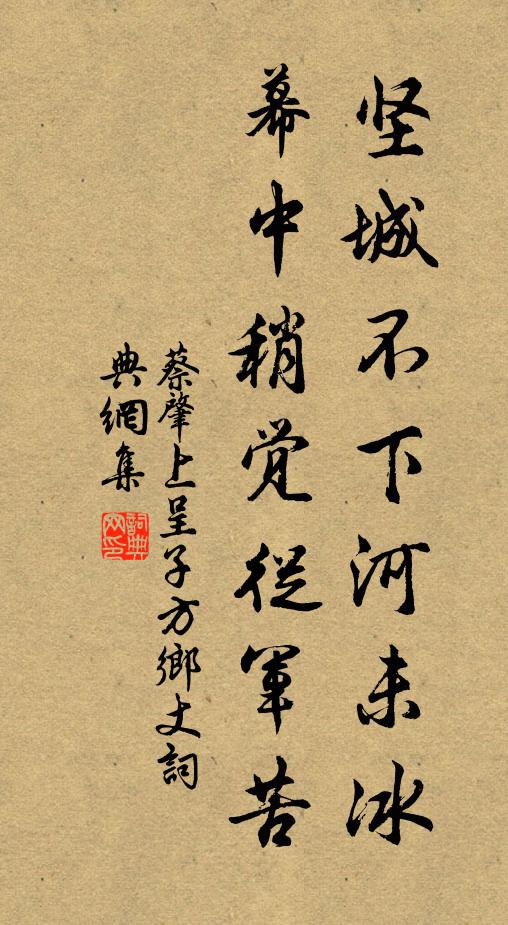 坚城不下河未冰
幕中稍觉從軍苦
蔡肇上呈子方鄉丈詞
典網集
詞典
网印